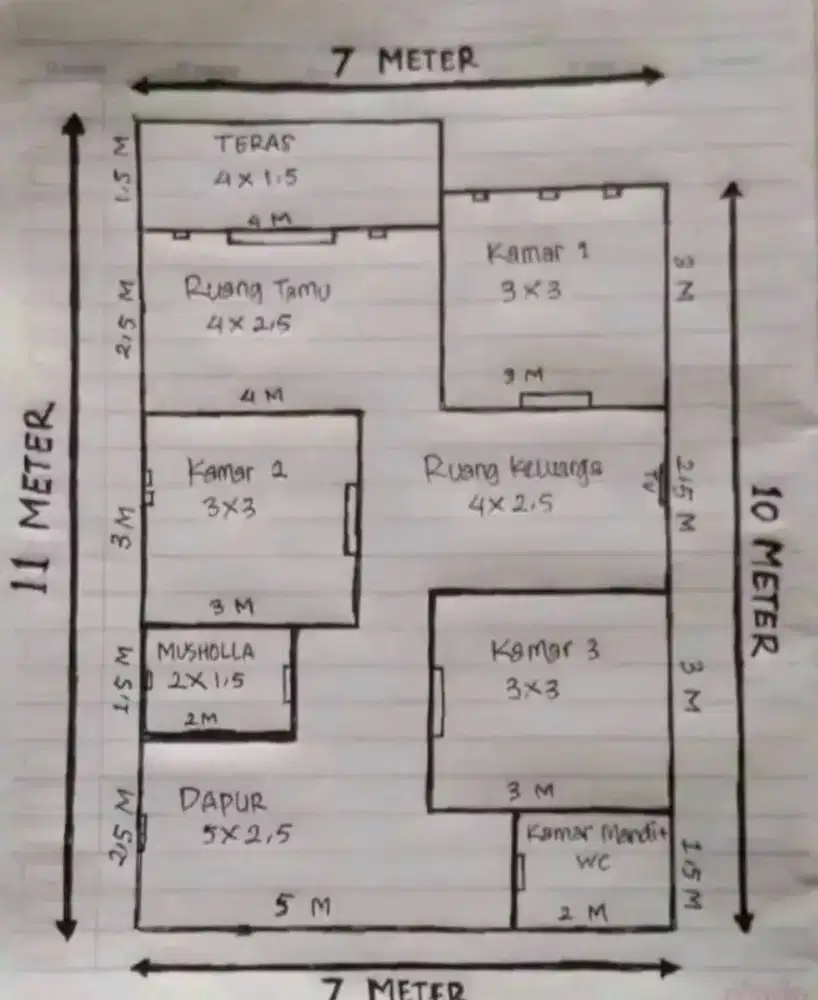 7 METER
TERAS
4 X 1.5
4 M
1.5 M
11 METER
Kamar 1
3 X 3
3 M
3 M
Ruang Tamu
4 X 2,5
4 M
2,5 M
Kamar 2
3X3
3 M
3 M
Ruang Keluarga
4 X 2.5
TV
2,5 M
10 METER
MUSHOLLA
2X1,5
2M
1,5 M
Kamar 3
3X3
3 M
3 M
DAPUR
5X2,5
5 M
2,5 M
Kamar Mandi+
WC
2 M
1,5 M
7 METER